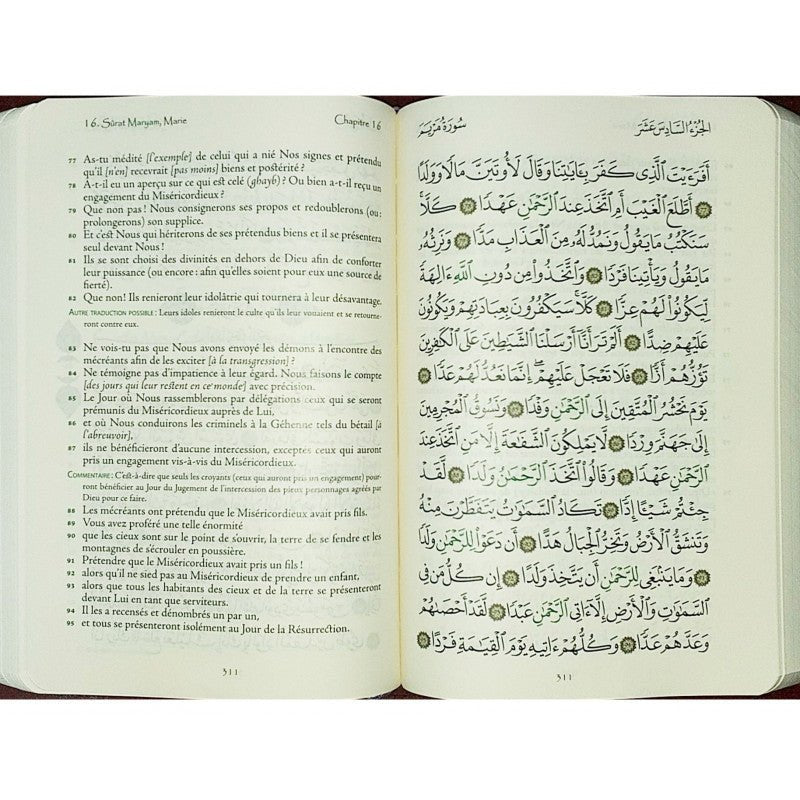 16. Sûrat Maryam, Marie
Chapitre 16
77 As-tu médité [l'exemple] de celui qui a nié Nos signes et prétendu
qu'il [n'en] recevrait [pas moins] biens et postérité ?
78 A-t-il eu un aperçu sur ce qui est celé (ghayb) ? Ou bien a-t-il reçu un
engagement du Miséricordieux ?
79 Que non pas ! Nous consignerons ses propos et redoublerons (ou :
prolongerons) son supplice.
80 Et c'est Nous qui hériterons de ses prétendus biens et il se présentera
seul devant Nous !
81 Ils se sont choisi des divinités en dehors de Dieu afin de conforter
leur puissance (ou encore : afin qu'elles soient pour eux une source de
fierté).
82 Que non! Ils renieront leur idolâtrie qui tournera à leur désavantage.
Autre traduction possible : Leurs idoles renieront le culte qu'ils leur vouaient et se retourne-
ront contre eux.
83 Ne vois-tu pas que Nous avons envoyé les démons à l'encontre des
mécréants afin de les exciter [à la transgression] ?
84 Ne témoigne pas d'impatience à leur égard. Nous faisons le compte
[des jours qui leur restent en ce monde] avec précision.
85 Le Jour où Nous rassemblerons par délégations ceux qui se seront
prémunis du Miséricordieux auprès de Lui,
86 et où Nous conduirons les criminels à la Géhenne tels du bétail [à
l'abreuvoir],
87 ils ne bénéficieront d'aucune intercession, exceptés ceux qui auront
pris un engagement vis-à-vis du Miséricordieux.
Commentaire : C'est-à-dire que seuls les croyants (ceux qui auront pris un engagement) pour-
ront bénéficier au Jour du Jugement de l'intercession des pieux personnages agréés par
Dieu pour ce faire.
88 Les mécréants ont prétendu que le Miséricordieux avait pris fils.
89 Vous avez proféré une telle énormité
90 que les cieux sont sur le point de s'ouvrir, la terre de se fendre et les
montagnes de s'écrouler en poussière.
91 Prétendre que le Miséricordieux avait pris un fils !
92 alors qu'il ne sied pas au Miséricordieux de prendre un enfant,
93 alors que tous les habitants des cieux et de la terre se présenteront
devant Lui en tant que serviteurs.
94 Il les a recensés et dénombrés un par un,
95 et tous se présenteront isolément au Jour de la Résurrection.
311
الجُزْءُ السَّادِسَ عَشَرَ
سُورَةُ مَرْيَمَ
أَفَرَءَيْتَ ٱلَّذِى كَفَرَ بِـَٔايَٰتِنَا وَقَالَ لَأُوتَيَنَّ مَالًا وَوَلَدًا
٧٧ أَطَّلَعَ ٱلْغَيْبَ أَمِ ٱتَّخَذَ عِندَ ٱلرَّحْمَٰنِ عَهْدًا ٧٨ كَلَّا
سَنَكْتُبُ مَا يَقُولُ وَنَمُدُّ لَهُۥ مِنَ ٱلْعَذَابِ مَدًّا ٧٩ وَنَرِثُهُۥ
مَا يَقُولُ وَيَأْتِينَا فَرْدًا ٨٠ وَٱتَّخَذُوا۟ مِن دُونِ ٱللَّهِ ءَالِهَةً
لِّيَكُونُوا۟ لَهُمْ عِزًّا ٨١ كَلَّا سَيَكْفُرُونَ بِعِبَادَتِهِمْ وَيَكُونُونَ
عَلَيْهِمْ ضِدًّا ٨٢ أَلَمْ تَرَ أَنَّآ أَرْسَلْنَا ٱلشَّيَٰطِينَ عَلَى ٱلْكَٰفِرِينَ
تَؤُزُّهُمْ أَزًّا ٨٣ فَلَا تَعْجَلْ عَلَيْهِمْ إِنَّمَا نَعُدُّ لَهُمْ عَدًّا ٨٤
يَوْمَ نَحْشُرُ ٱلْمُتَّقِينَ إِلَى ٱلرَّحْمَٰنِ وَفْدًا ٨٥ وَنَسُوقُ ٱلْمُجْرِمِينَ
إِلَىٰ جَهَنَّمَ وِرْدًا ٨٦ لَّا يَمْلِكُونَ ٱلشَّفَٰعَةَ إِلَّا مَنِ ٱتَّخَذَ عِندَ
ٱلرَّحْمَٰنِ عَهْدًا ٨٧ وَقَالُوا۟ ٱتَّخَذَ ٱلرَّحْمَٰنُ وَلَدًا ٨٨ لَّقَدْ
جِئْتُمْ شَيْـًٔا إِدًّا ٨٩ تَكَادُ ٱلسَّمَٰوَٰتُ يَتَفَطَّرْنَ مِنْهُ
وَتَنشَقُّ ٱلْأَرْضُ وَتَخِرُّ ٱلْجِبَالُ هَدًّا ٩٠ أَن دَعَوْا۟ لِلرَّحْمَٰنِ وَلَدًا
٩١ وَمَا يَنۢبَغِى لِلرَّحْمَٰنِ أَن يَتَّخِذَ وَلَدًا ٩٢ إِن كُلُّ مَن فِى
ٱلسَّمَٰوَٰتِ وَٱلْأَرْضِ إِلَّآ ءَاتِى ٱلرَّحْمَٰنِ عَبْدًا ٩٣ لَّقَدْ أَحْصَىٰهُمْ
وَعَدَّهُمْ عَدًّا ٩٤ وَكُلُّهُمْ ءَاتِيهِ يَوْمَ ٱلْقِيَٰمَةِ فَرْدًا ٩٥
311